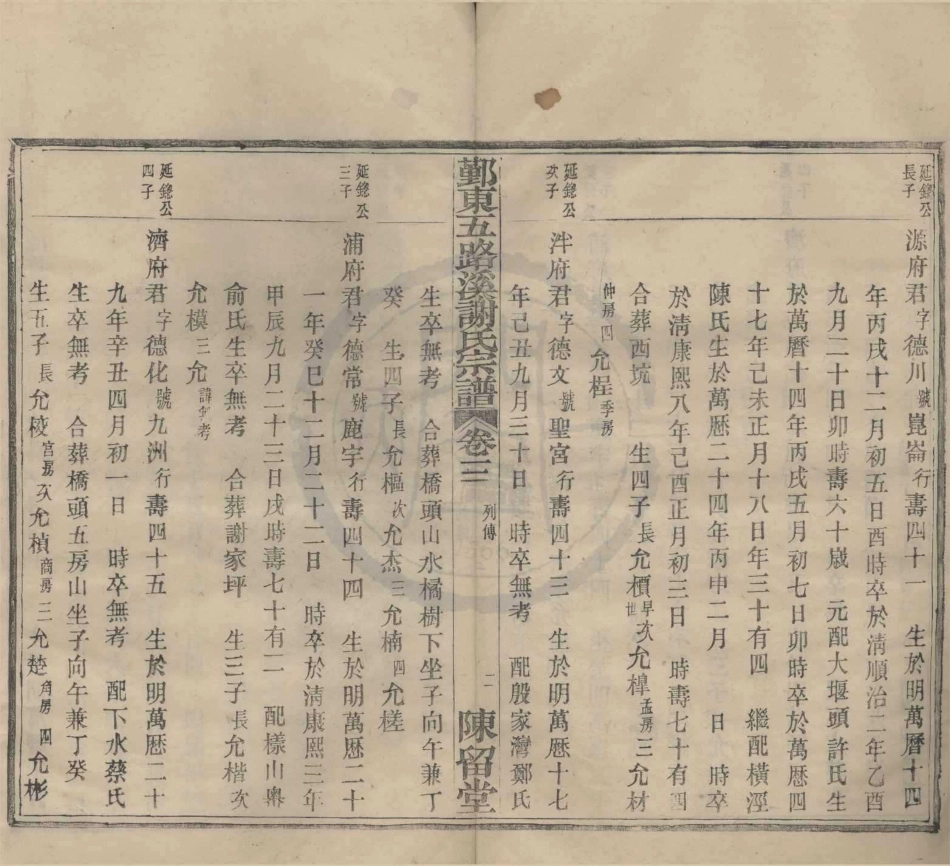 延鏓公長子
源府君字德川號崑崙行壽四十一　生於明萬曆十四
年丙戌十二月初五日酉時卒於淸順治二年乙酉
九月二十日卯時壽六十歲　元配大堰頭許氏生
於萬曆十四年丙戌五月初七日卯時卒於萬曆四
十七年己未正月十八日年三十有四　繼配橫涇
陳氏生於萬曆二十四年丙申二月　日　時卒
於淸康熙八年己酉正月初三日　時壽七十有四
合葬西坑　生四子長允櫝早世次允橰孟房三允材
仲房四允桯季房
延鏓公次子
泮府君字德文號聖宮行壽四十三　生於明萬曆十七
年己丑九月三十日　時卒無考　配殷家灣鄭氏
鄞東五路溪謝氏宗譜　卷三　列傳　二　陳留堂
生卒無考　合葬橋頭山水橘樹下坐子向午兼丁
癸　生四子長允樞次允杰三允楠四允槎
延鏓公三子
浦府君字德常號鹿宇行壽四十四　生於明萬曆二十
一年癸巳十二月二十二日　時卒於淸康熙三年
甲辰九月二十三日戌時壽七十有二　配樣山㠘
俞氏生卒無考　合葬謝家坪　生三子長允楷次
允模三允諱無考
延鏓公四子
濟府君字德化號九洲行壽四十五　生於明萬曆二十
九年辛丑四月初一日　時卒無考　配下水蔡氏
生卒無考　合葬橋頭五房山坐子向午兼丁癸
生五子長允校宮房次允楨商房三允楚角房四允彬